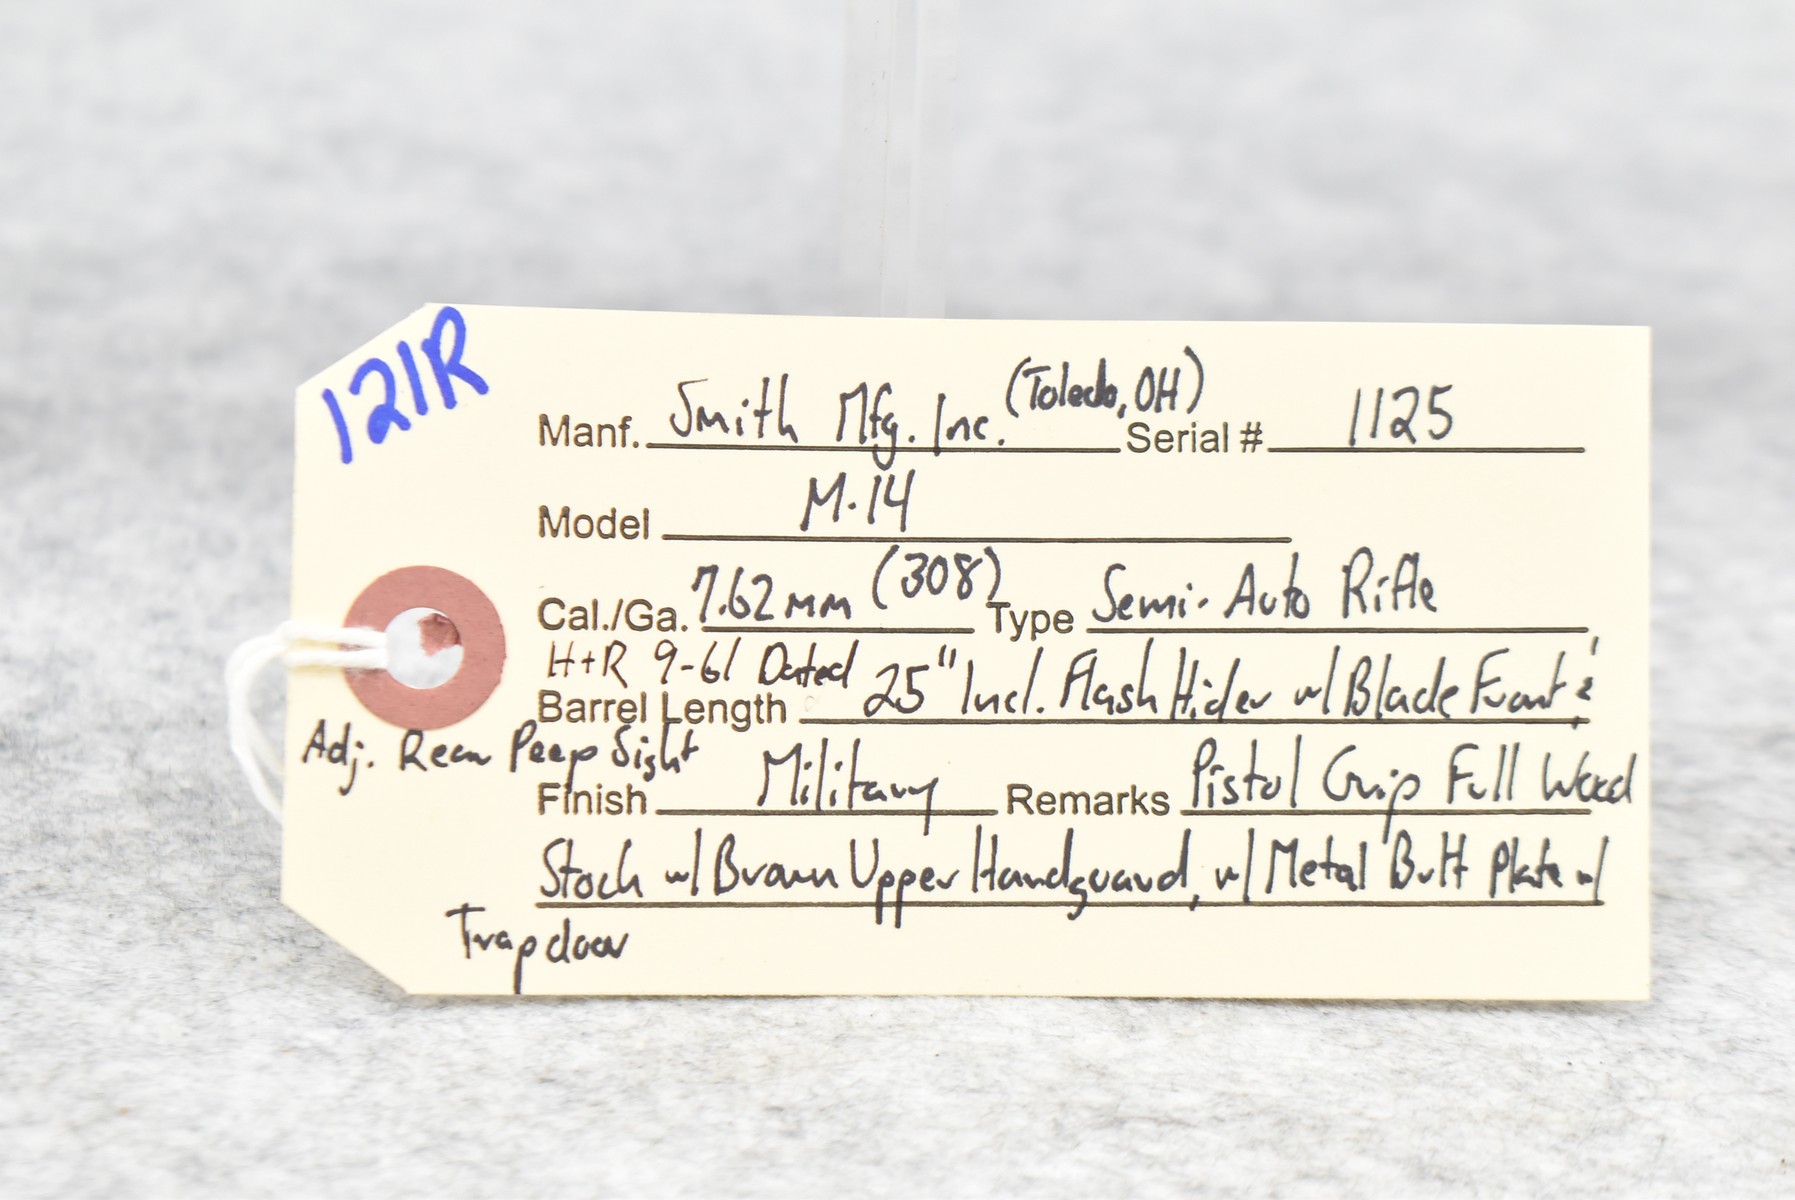 121R
Manf. Smith Mfg. Inc. (Toledo, OH) Serial # 1125
Model M-14
Cal./Ga. 7.62mm (308) Type Semi-Auto Rifle
H+R 9-61 Dated
Barrel Length 25" Incl. Flash Hider w/ Blade Front &
Adj. Rear Peep Sight
Finish Military Remarks Pistol Grip Full Wood
Stock w/ Brown Upper Handguard, w/ Metal Butt Plate w/
Trapdoor